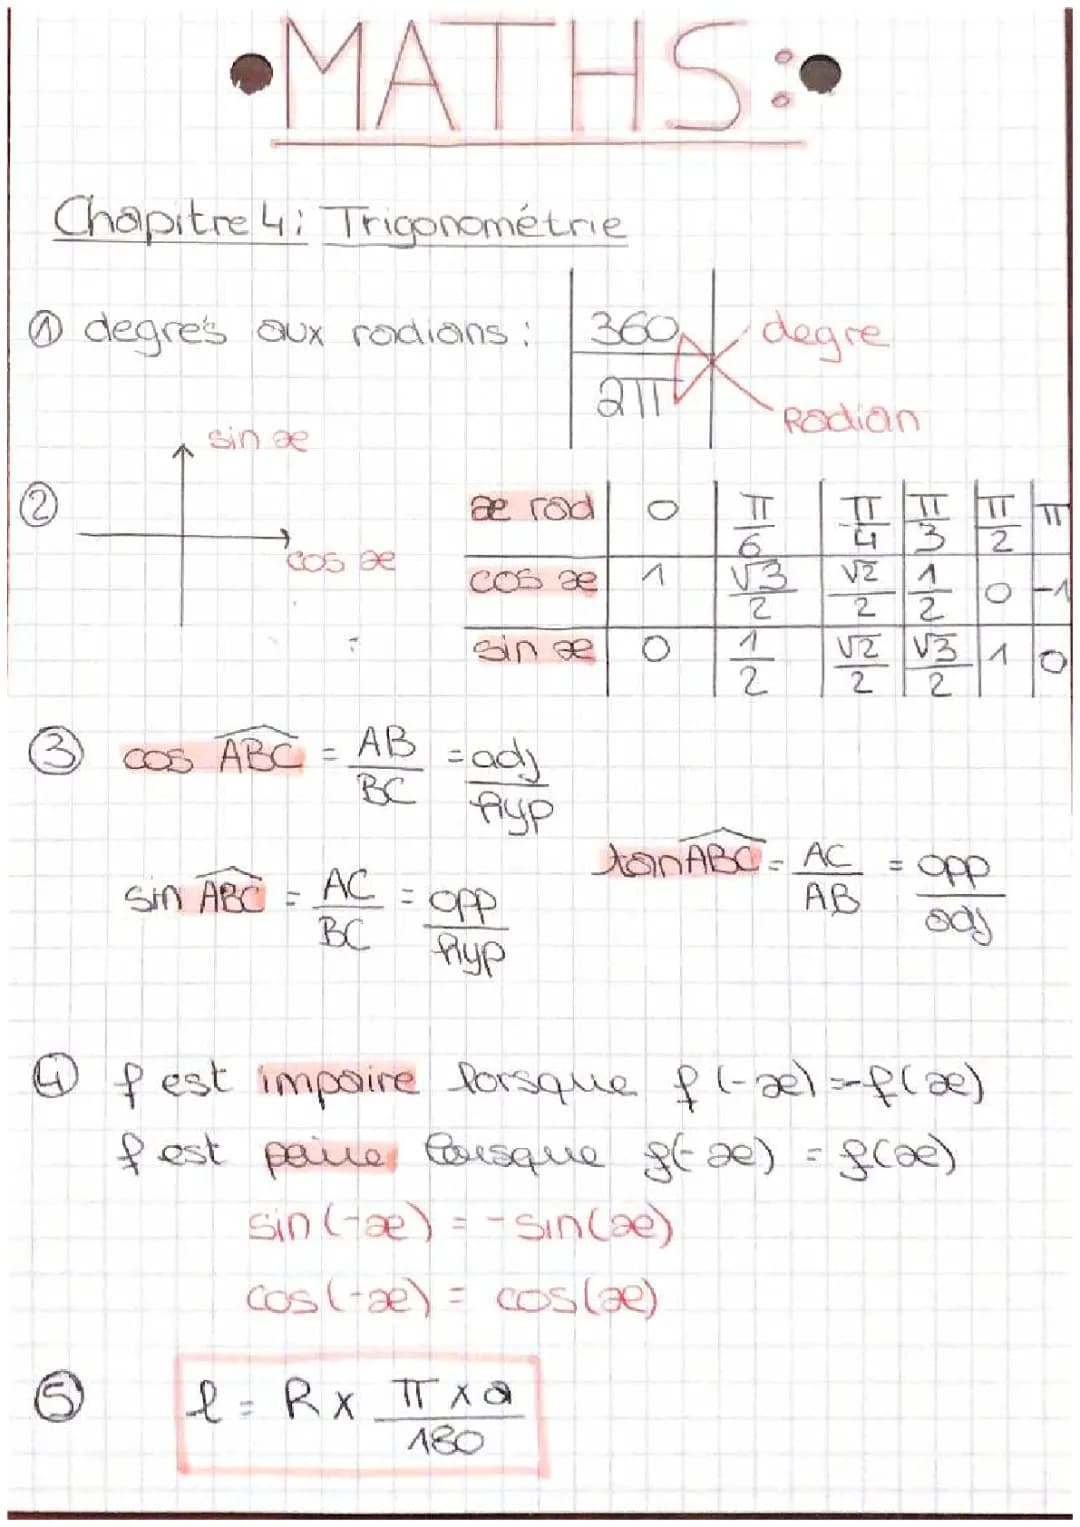 MATHS:
Chapitre 4: Trigonométrie
① degrés aux radians: 360 degre
2π Radian
② sin x
cos x
x rad 0 π/6 π/4 π/3 π/2 π
cos x 1 √3/2 √2/2 1/2 0 -1
sin x 0 1/2 √2/2 √3/2 1 0
③ cos ABC = AB/BC = adj/hyp
sin ABC = AC/BC = opp/hyp
tan ABC = AC/AB = opp/adj
④ f est impaire lorsque f(-x) = -f(x)
f est paire lorsque f(-x) = f(x)
sin(-x) = -sin(x)
cos(-x) = cos(x)
⑤ l = R x π x a/180